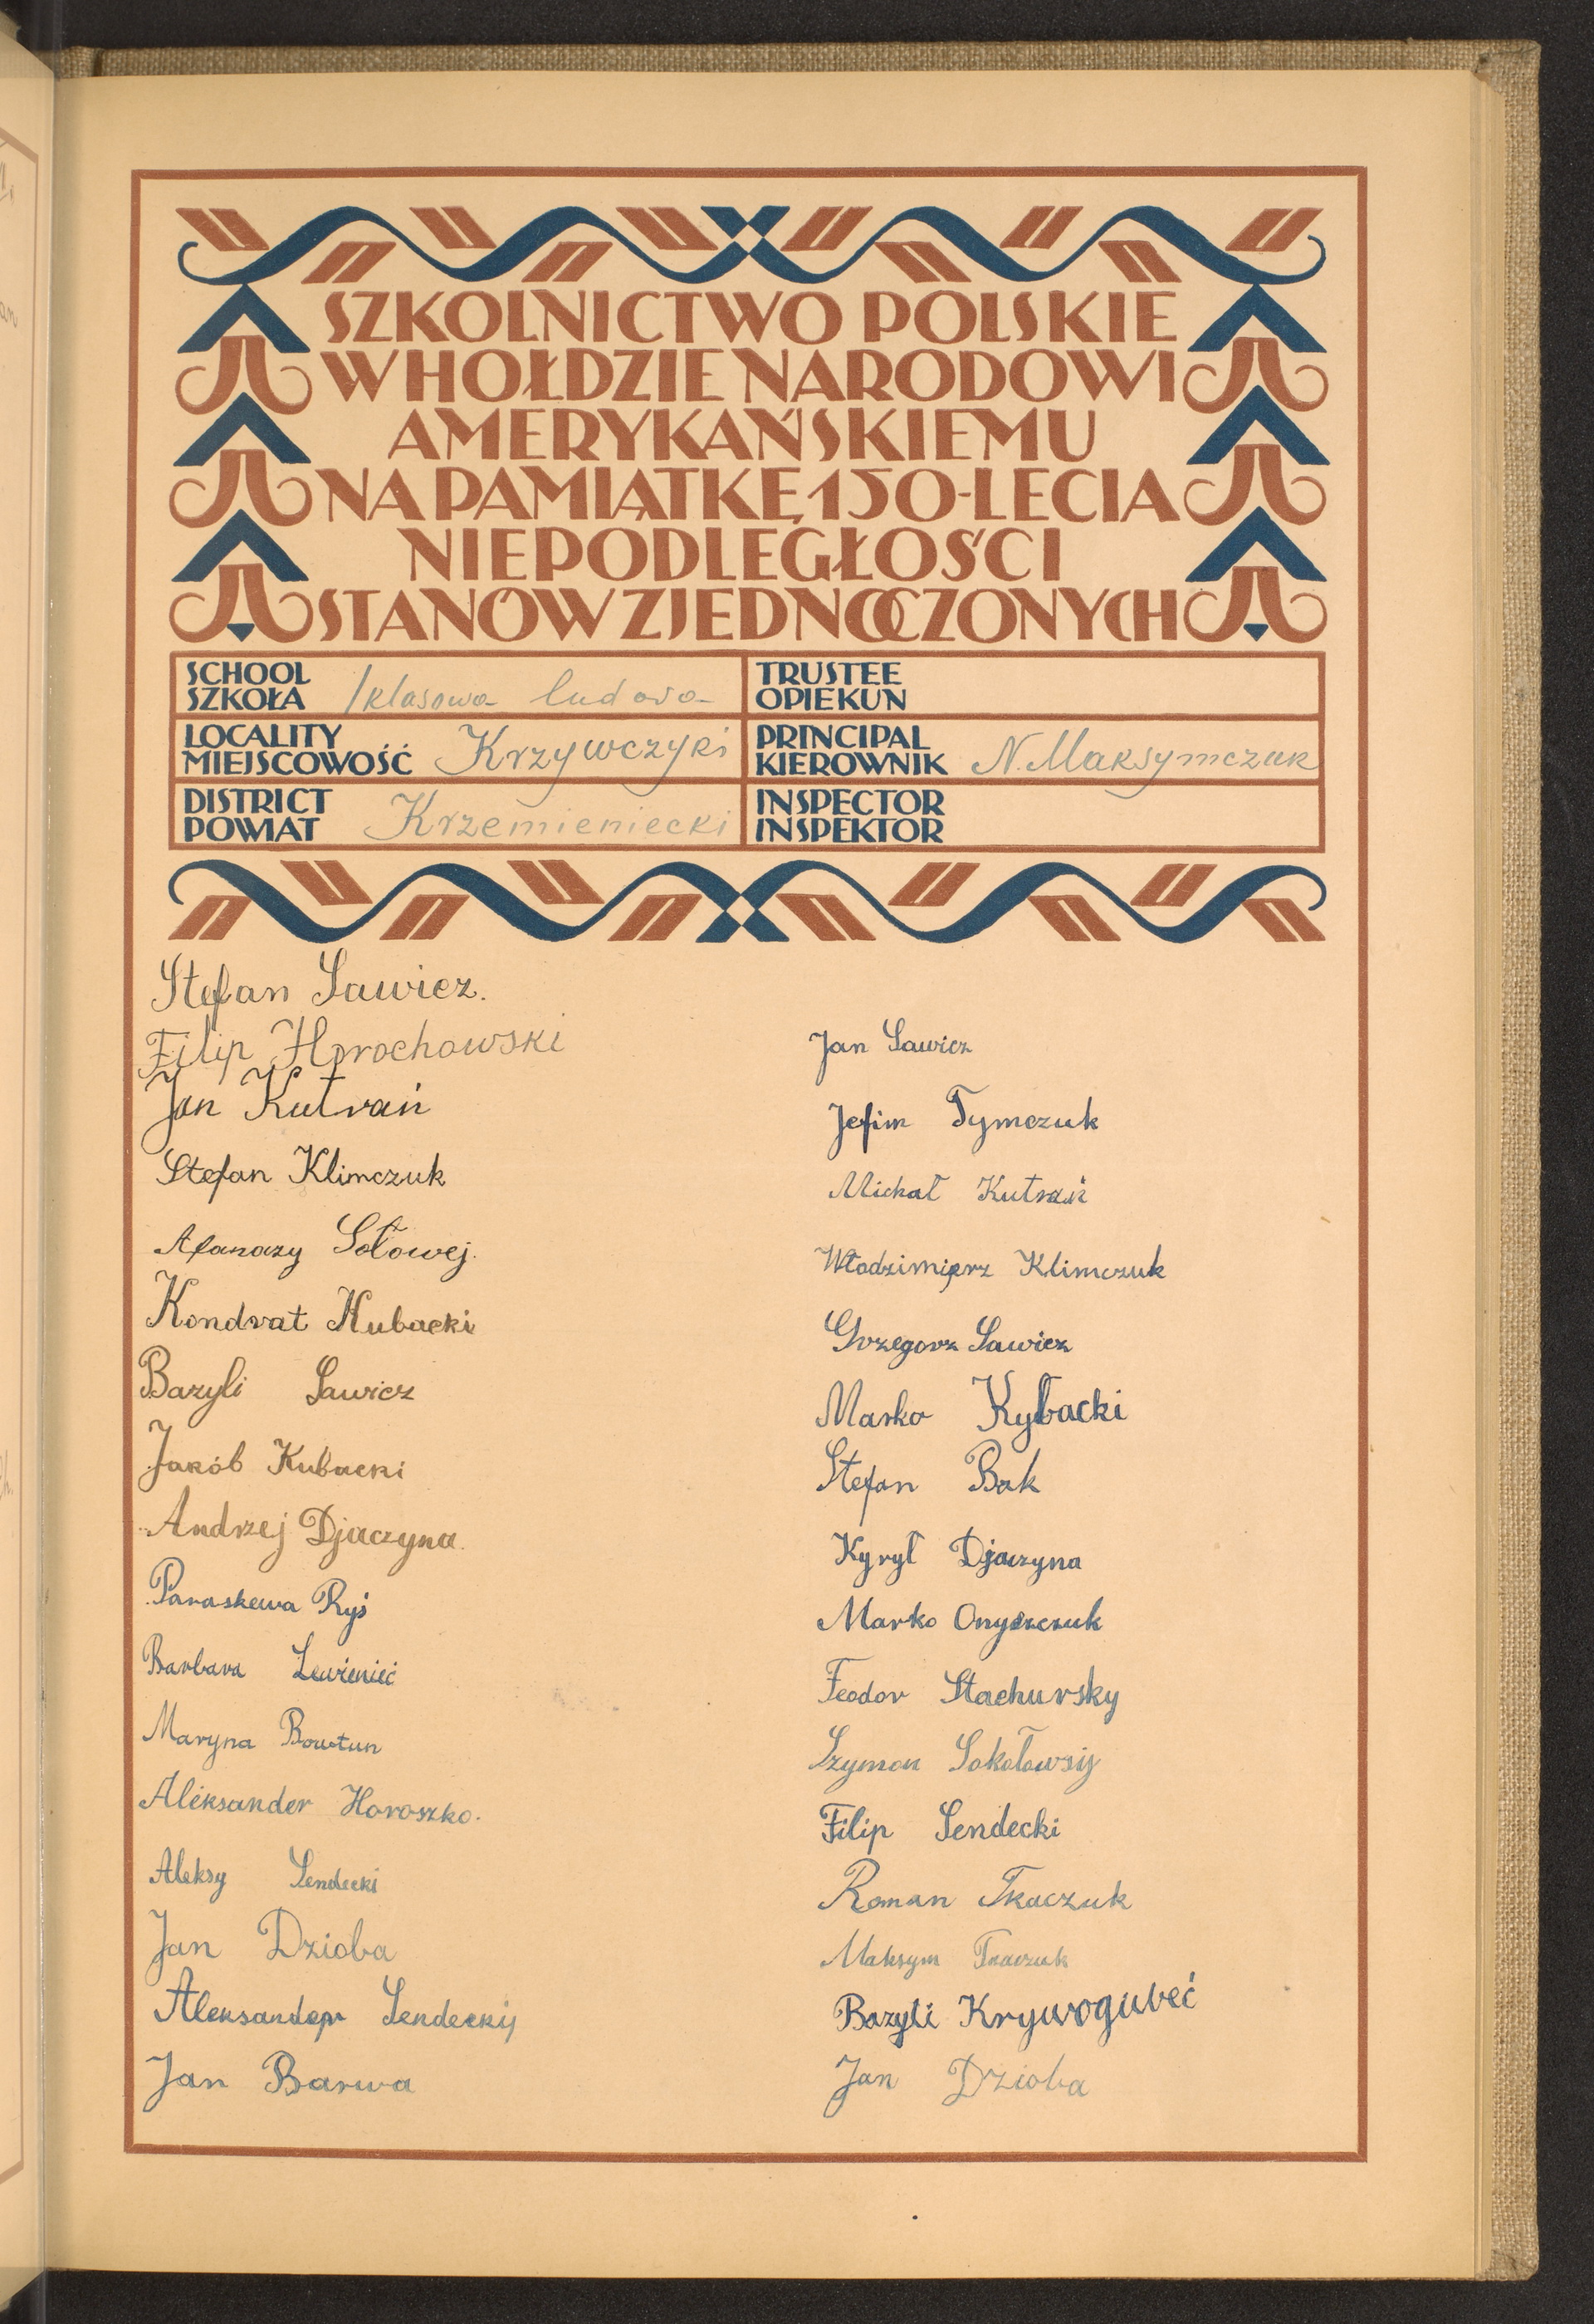 SZKOLNICTWO POLSKIE
W HOŁDZIE NARODOWI
AMERYKAŃSKIEMU
NA PAMIĄTKĘ 150-LECIA
NIEPODLEGŁOŚCI
STANÓW ZJEDNOCZONYCH
SCHOOL
SZKOŁA 1klasowa ludowa
LOCALITY
MIEJSCOWOŚĆ Krzywczyki
DISTRICT
POWIAT Krzemieniecki
TRUSTEE
OPIEKUN
PRINCIPAL
KIEROWNIK N. Maksymczuk
INSPECTOR
INSPEKTOR
Stefan Sawicz.
Filip Horochowski
Jan Kutrań
Stefan Klimczuk
Afanazy Sołowej.
Kondrat Kubacki
Bazyli Sawicz
Jakób Kubacki
Andrzej Djaczyna.
Paraskewa Ryś
Barbara
Maryna Bowtun
Aleksander Horoszko.
Aleksy Sendecki
Jan Dzioba
Aleksander Sendeckij
Jan Barwa
Jan Sawicz
Jefim Tymczuk
Michał Kutrań
Włodzimierz Klimczuk
Grzegorz Sawicz
Marko Kybacki
Stefan Bak
Kyrył Djaczyna
Marko Onyszczuk
Feodor Stachursky
Szymon Sokołowsij
Filip Sendecki
Roman Tkaczuk
Maksym Tkaczuk
Bazyli Krywogubeć
Jan Dzioba